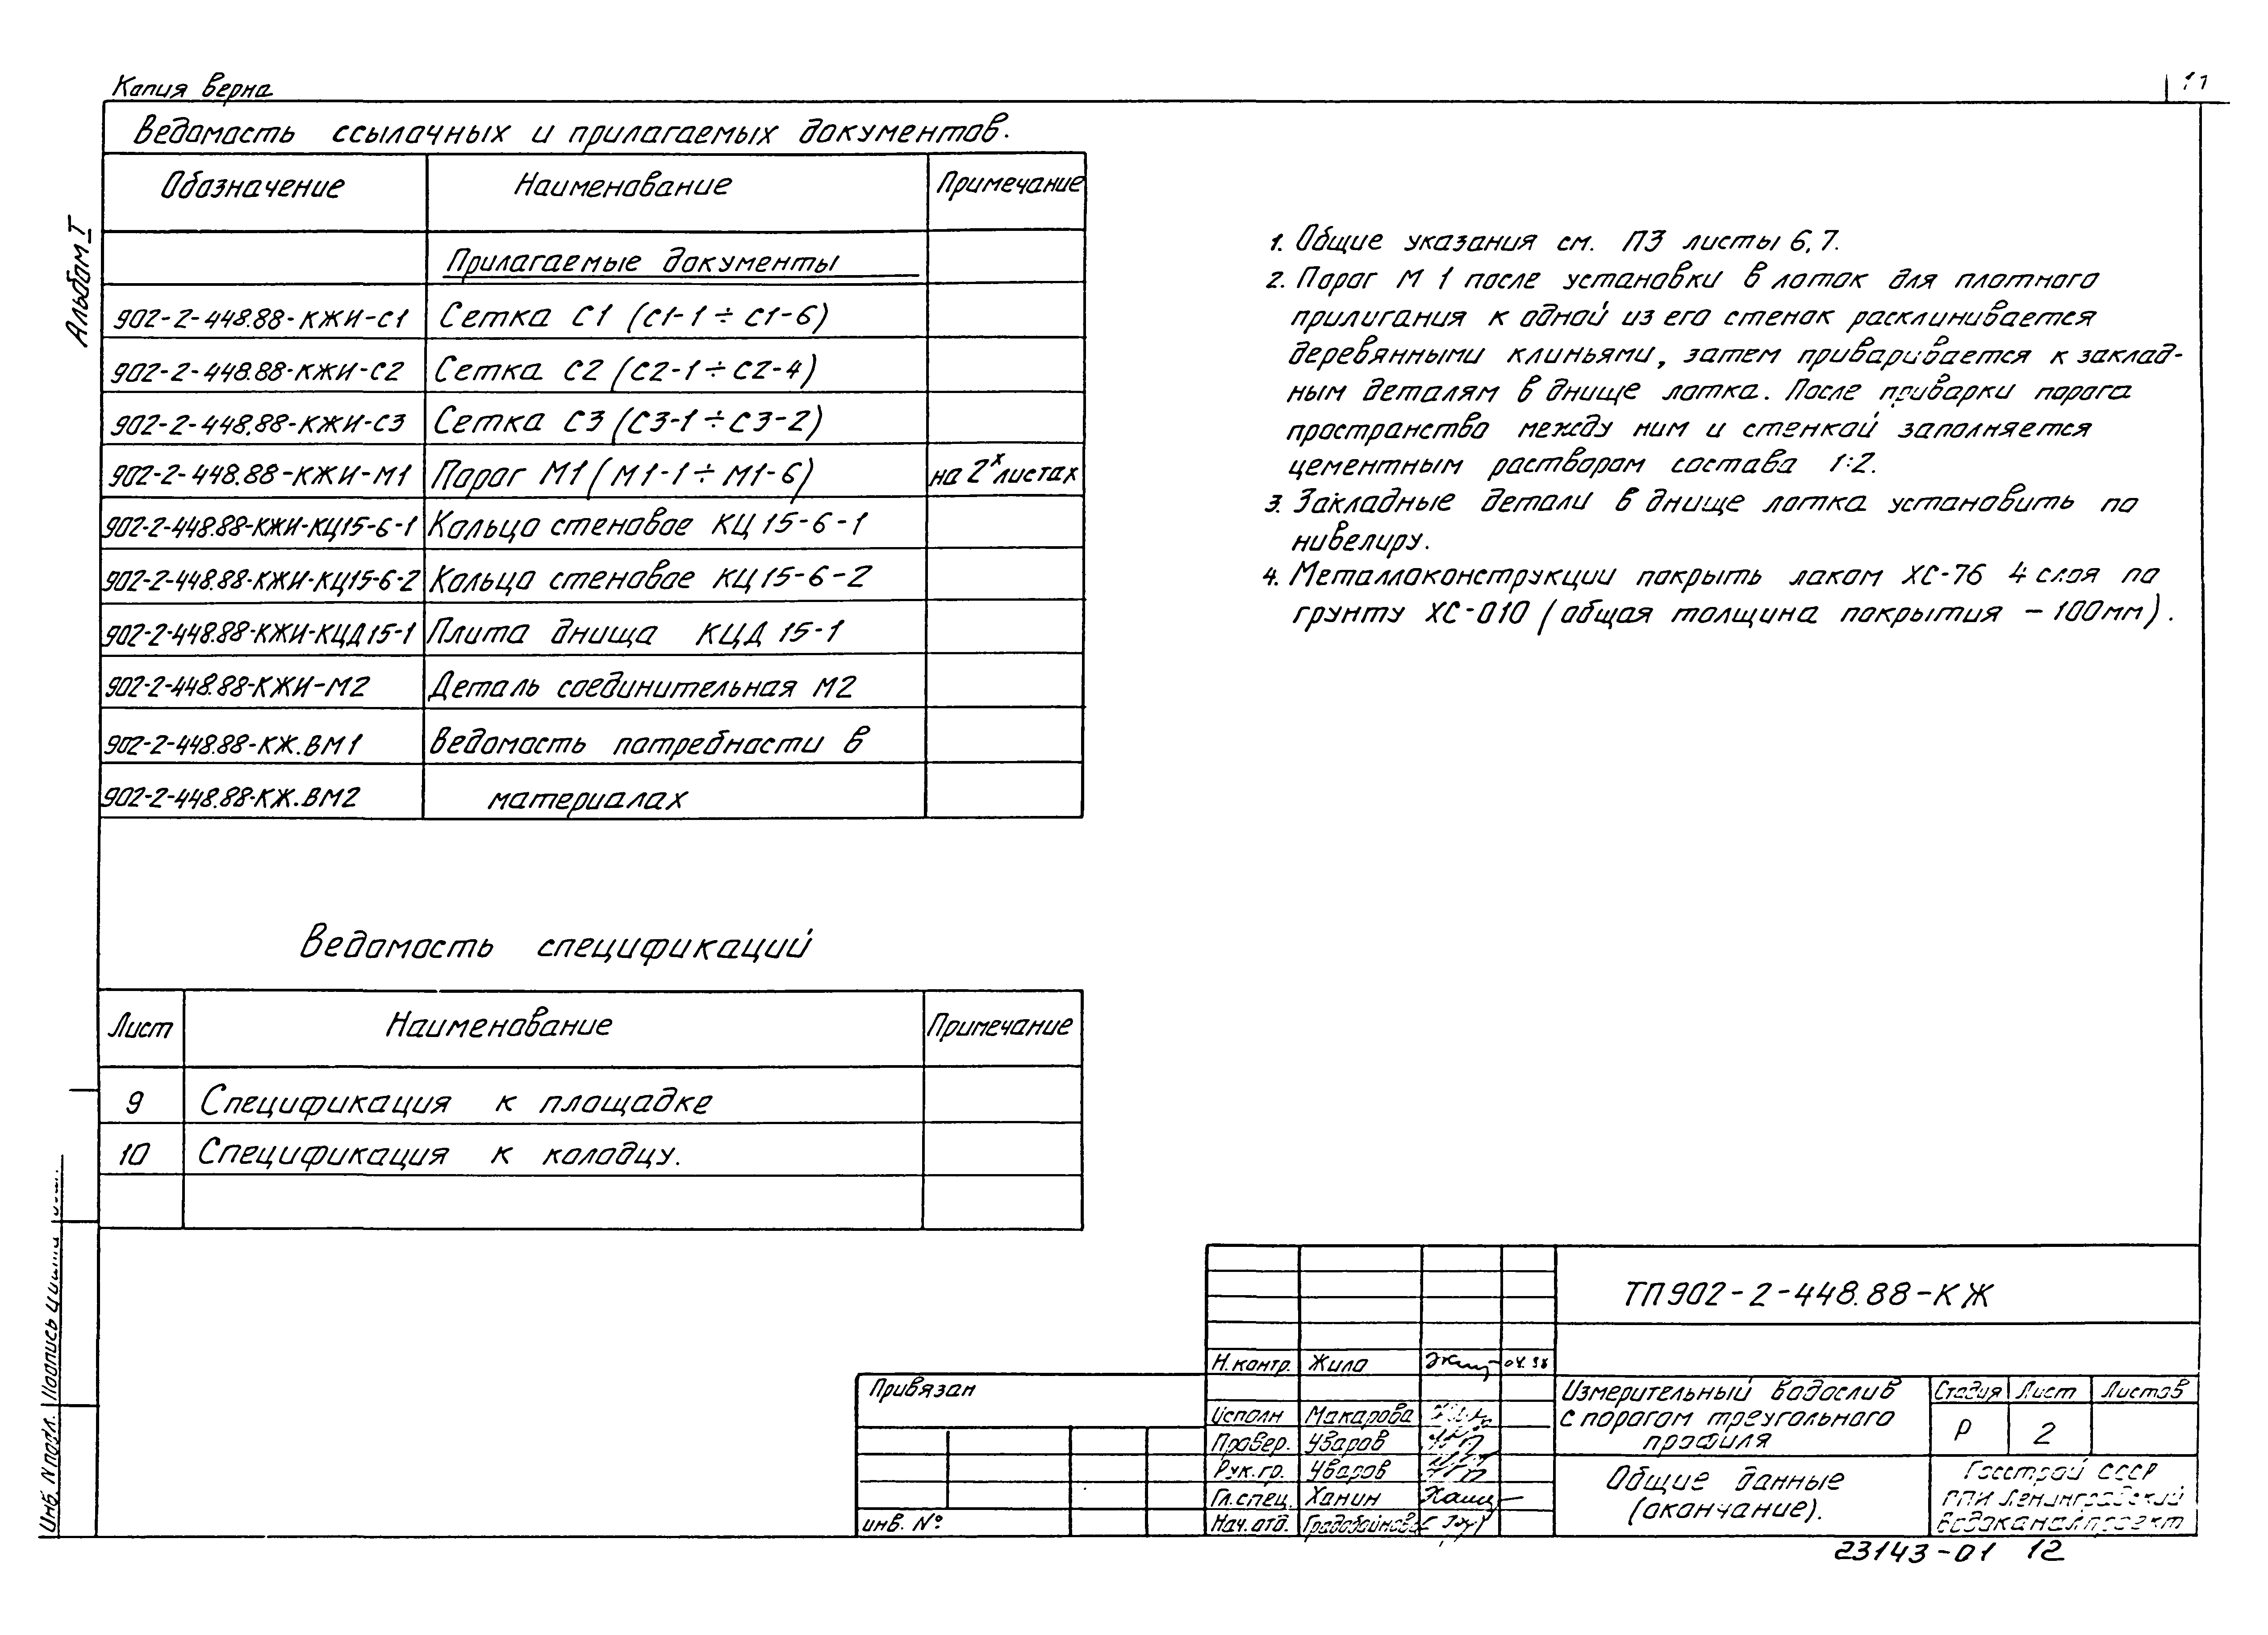 Копия верна
11
Альбом I
Ведомость ссылочных и прилагаемых документов.
Обозначение Наименование Примечание
Прилагаемые документы
902-2-448.88-КЖИ-С1 Сетка С1 (С1-1÷С1-6)
902-2-448.88-КЖИ-С2 Сетка С2 (С2-1÷С2-4)
902-2-448.88-КЖИ-С3 Сетка С3 (С3-1÷С3-2)
902-2-448.88-КЖИ-М1 Порог М1 (М1-1÷М1-6) на 2х листах
902-2-448.88-КЖИ-КЦ15-6-1 Кольцо стеновое КЦ 15-6-1
902-2-448.88-КЖИ-КЦ15-6-2 Кольцо стеновое КЦ 15-6-2
902-2-448.88-КЖИ-КЦД15-1 Плита днища КЦД 15-1
902-2-448.88-КЖИ-М2 Деталь соединительная М2
902-2-448.88-КЖ.ВМ1 Ведомость потребности в
902-2-448.88-КЖ.ВМ2 материалах
Ведомость спецификаций
Лист Наименование Примечание
9 Спецификация к площадке
10 Спецификация к колодцу.
1. Общие указания см. ПЗ листы 6,7.
2. Порог М 1 после установки в лоток для плотного
прилигания к одной из его стенок расклинивается
деревянными клиньями, затем приваривается к заклад-
ным деталям в днище лотка. После приварки порога
пространство между ним и стенкой заполняется
цементным раствором состава 1:2.
3. Закладные детали в днище лотка установить по
нивелиру.
4. Металлоконструкции покрыть лаком ХС-76 4 слоя по
грунту ХС-010 (общая толщина покрытия – 100мм).
ТП902-2-448.88-КЖ
Н.контр. Жила
Исполн Макарова
Провер. Уваров
Рук.гр. Уваров
Гл.спец. Ханин
Нач.отд. Градобойнова
Привязан
инв. №
Измерительный водослив
с порогом треугольного
профиля
Стадия Лист Листов
Р 2
Общие данные
(окончание).
Госстрой СССР
ГПИ Ленинградский
Водоканалпроект
23143-01 12
Инв. N подл. Подпись и дата